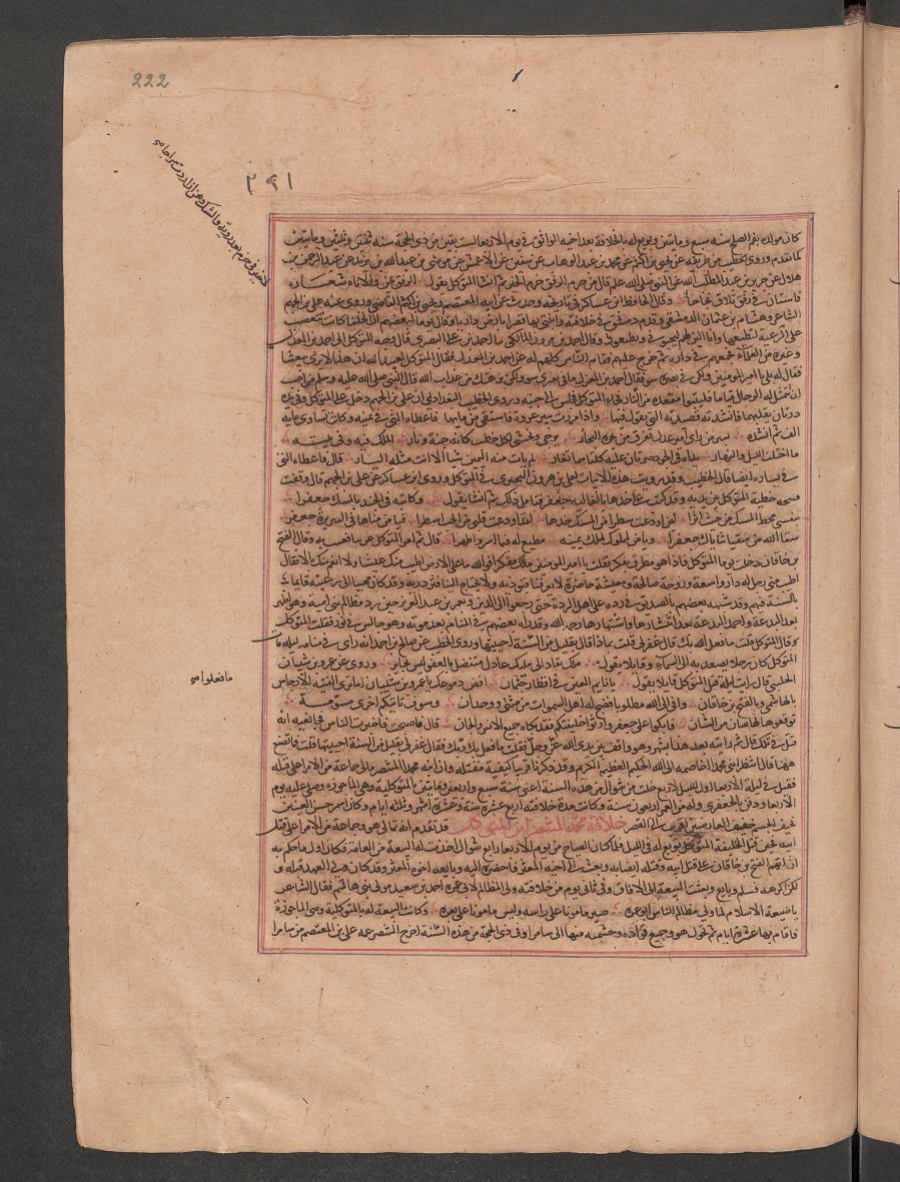 222
٢٩١
كان مولده بفم الصلح سنة سبع وماتين وبويع له بالخلافة بعد اخيه الواثق في يوم الاربعا لست بقين من ذي الحجة سنة ثنتين وثلثين ومايتين
كما تقدم وروى الخطيب من طريقه عن يحيى بن اكثم عن محمد بن عبد الوهاب عن سفين عن الاعمش عن موسى بن عبد الله بن يزيد عن عبد الرحمن بن
هلال عن جرير بن عبد الله عن النبي صلى الله عليه قال من حرم الرفق حرم الخير ثم انشا المتوكل يقول الرفق يمن والاناة سعادة
فاستان في رفق تلاق نجاحا وقال الحافظ ابن عساكر في تاريخه وحدث عن ابيه المعتصم ويحيى بن اكثم القاضي وروى عنه علي بن الجهم
الشاعر وهشام بن عمار الدمشقي وقدم دمشق في خلافته وابتنى بها قصرا بارض داريا وقال يوما لبعضهم ان الخلفا كانت تتعصب
على الرعية لتطيعها وانا الين لهم ليحبوني ويطيعوني وقال احمد بن مروان المالكي ما احمد بن علي البصري قال وجه المتوكل الى احمد بن المعذل
وغيره من العلماء فجمعهم في داره ثم خرج عليهم فقام الناس كلهم له غير احمد بن المعذل فقال المتوكل لعبيد الله ان هذا لا يرى بيعتنا
فقال له بلى يا امير المومنين ولكن في بصره سو فقال احمد بن المعذل ما في بصري سو ولكن نزهتك من عذاب الله قال النبي صلى الله عليه وسلم من احب
ان تمثل له الرجال قياما فليتبوا مقعده من النار فجاء المتوكل فجلس الى جنبه وروى الخطيب البغدادي ان علي بن الجهم دخل على المتوكل وفي يده
درتان يقلبهما فانشدته قصيدته التي يقول فيها واذا مررت ببير عروة فاستقي من مايها فاعطاه التي في يمينه وكانت تساوي ماية
الف ثم انشده بسر من راى امير عدل تغرف من بحره البحار يرجى ويخشى لكل خطب كانه جنة ونار الملك فيه وفي بنيه
ما اختلف الليل والنهار يداه في الجود ضرتان عليه كلتاهما تغار لم يات منه اليمين شيا الا اتت مثله اليسار قال فاعطاه التي
في يساره ايضا قال الخطيب وقد رويت هذه الابيات لعلي بن هرون البحتري في المتوكل وروى ابن عساكر عن علي بن الجهم قال وقفت
فبيحه حظية المتوكل بين يديه وقد كتبت على خدها بالغالية جعفر فتامل ذلك ثم انشا يقول وكاتبة في الخد بالمسك جعفرا
بنفسي محط المسك من حيث اثرا لين اودعت سطرا من المسك خدها لقد اودعت قلبي من الحب اسطرا فيا من مناها في السريرة جعفر
سقا الله من سقيا ثناياك جعفرا ويا من لمملوك لملك يمينه مطيع له فيما اسر واظهرا قال ثم امر المتوكل عريب فغنت به وقال الفتح
بن خاقان دخلت يوما المتوكل فاذا هو مطرق مفكر فقلت يا امير المومنين مالك مفكرا فوالله ما على الارض اطيب منك عيشا ولا انعم منك بالا فقال
اطيب مني رجل له دار واسعة وزوجة صالحة ومعيشة حاضرة لا يعرفنا فنوذيه ولا يحتاج الينا فنزدريه وقد كان محببا الى رعيته قايما
بالسنة فيهم وقد شبهه بعضهم بالصديق في رده على اهل الردة حتى رجعوا الى الدين وبعمر بن عبد العزيز حين رد مظالم بني امية وهو اظهر
بعد البدعة واخمد البدعة بعد انتشارها واشتهارها رحمه الله وقد راه بعضهم في المنام بعد موته وهو جالس في نور فقلت المتوكل
قال المتوكل قلت ما فعل الله بك قال غفر لي قلت بماذا قال بقليل من السنة احييتها وروى الخطيب عن صالح بن احمد انه راى في منامه ليلة مات
المتوكل كان رجلا يصعد به الى السماء وقايلا يقول ملك يقاد الى مليك عادل متفضل بالعفو ليس بجاير وروى عن عمرو بن شيبان
الحلبي قال رايت ليلة قتل المتوكل قايلا يقول يا نايم العين في اقطار جثمان افض دموعك يا عمرو بن شيبان اما ترى الفتية الارجاس ما فعلوا
بالهاشمي وبالفتح بن خاقان وافى الى الله مظلوما فضج له اهل السموات من مثنى ووحدان وسوف تاتيكم اخرى مسومة
توقعوها لها شان من الشان فابكوا على جعفر وارثوا خليفتكم فقد بكاه جميع الانس والجان قال فاصبحت فاخبرت الناس فجا نعيه انه
قتل في تلك قال ثم رايته بعد هذا بشهر وهو واقف بين يدى الله عز وجل فقلت ما فعل بك ربك فقال غفر لي بقليل من السنة احييتها قلت فما تصنع
ههنا قال انتظر ابني محمدا اخاصمه الى الله الحليم العظيم الكريم وقد ذكرنا قريبا كيفية مقتله وان ابنه محمدا المنتصر مالى جماعة من الامرا على قتله
فقتل في ليلة الاربعا اول الليل لاربع خلت من شوال من هذه السنة اعني سنة سبع واربعين ومايتين بالمتوكلية وهي الماحوزة وصلي عليه يوم
الاربعا ودفن بالجعفري وله من العمر اربعون سنة وكانت مدة خلافته اربع عشرة سنة وعشرة اشهر وثلثة ايام وكان اسمر حسن العينين
نحيف الجسم خفيف العارضين اقرب الى القصر خلافة محمد المنتصر ابن المتوكل قد تقدم انه تمالى هو وجماعة من الامرا على قتل
ابيه فحين قتل الخليفة المتوكل بويع له في الليل فلما كان الصباح من يوم الاربعا رابع شوال اخذت له البيعة من العامة فكان اول ما حكم به
ان اتهم الفتح بن خاقان على قتل ابيه وقتله ايضا به وبعث الى اخيه المعتز فاحضره اليه وبايعه اخوه المعتز وقد كان هو في العهد قبله و
لكن اكرهه فسلم وبايع وبعثت البيعة الى الافاق وفي ثاني يوم من خلافته ولى المظالم لابي عمرة احمد بن سعيد مولى بني هاشم فقال الشاعر
يا ضيعة الاسلام لما ولي مظالم الناس ابو عمره صير مامونا على راسه وليس مامونا على بعره وكانت البيعة له بالمتوكلية وهي الماحوزة
فاقام بها عشرة ايام ثم تحول هو وجميع قواده وحشمه منها الى سامرا وفي ذي الحجة من هذه السنة اخرج المنتصر عمه علي بن المعتصم من سامرا
ما فعلوا صح